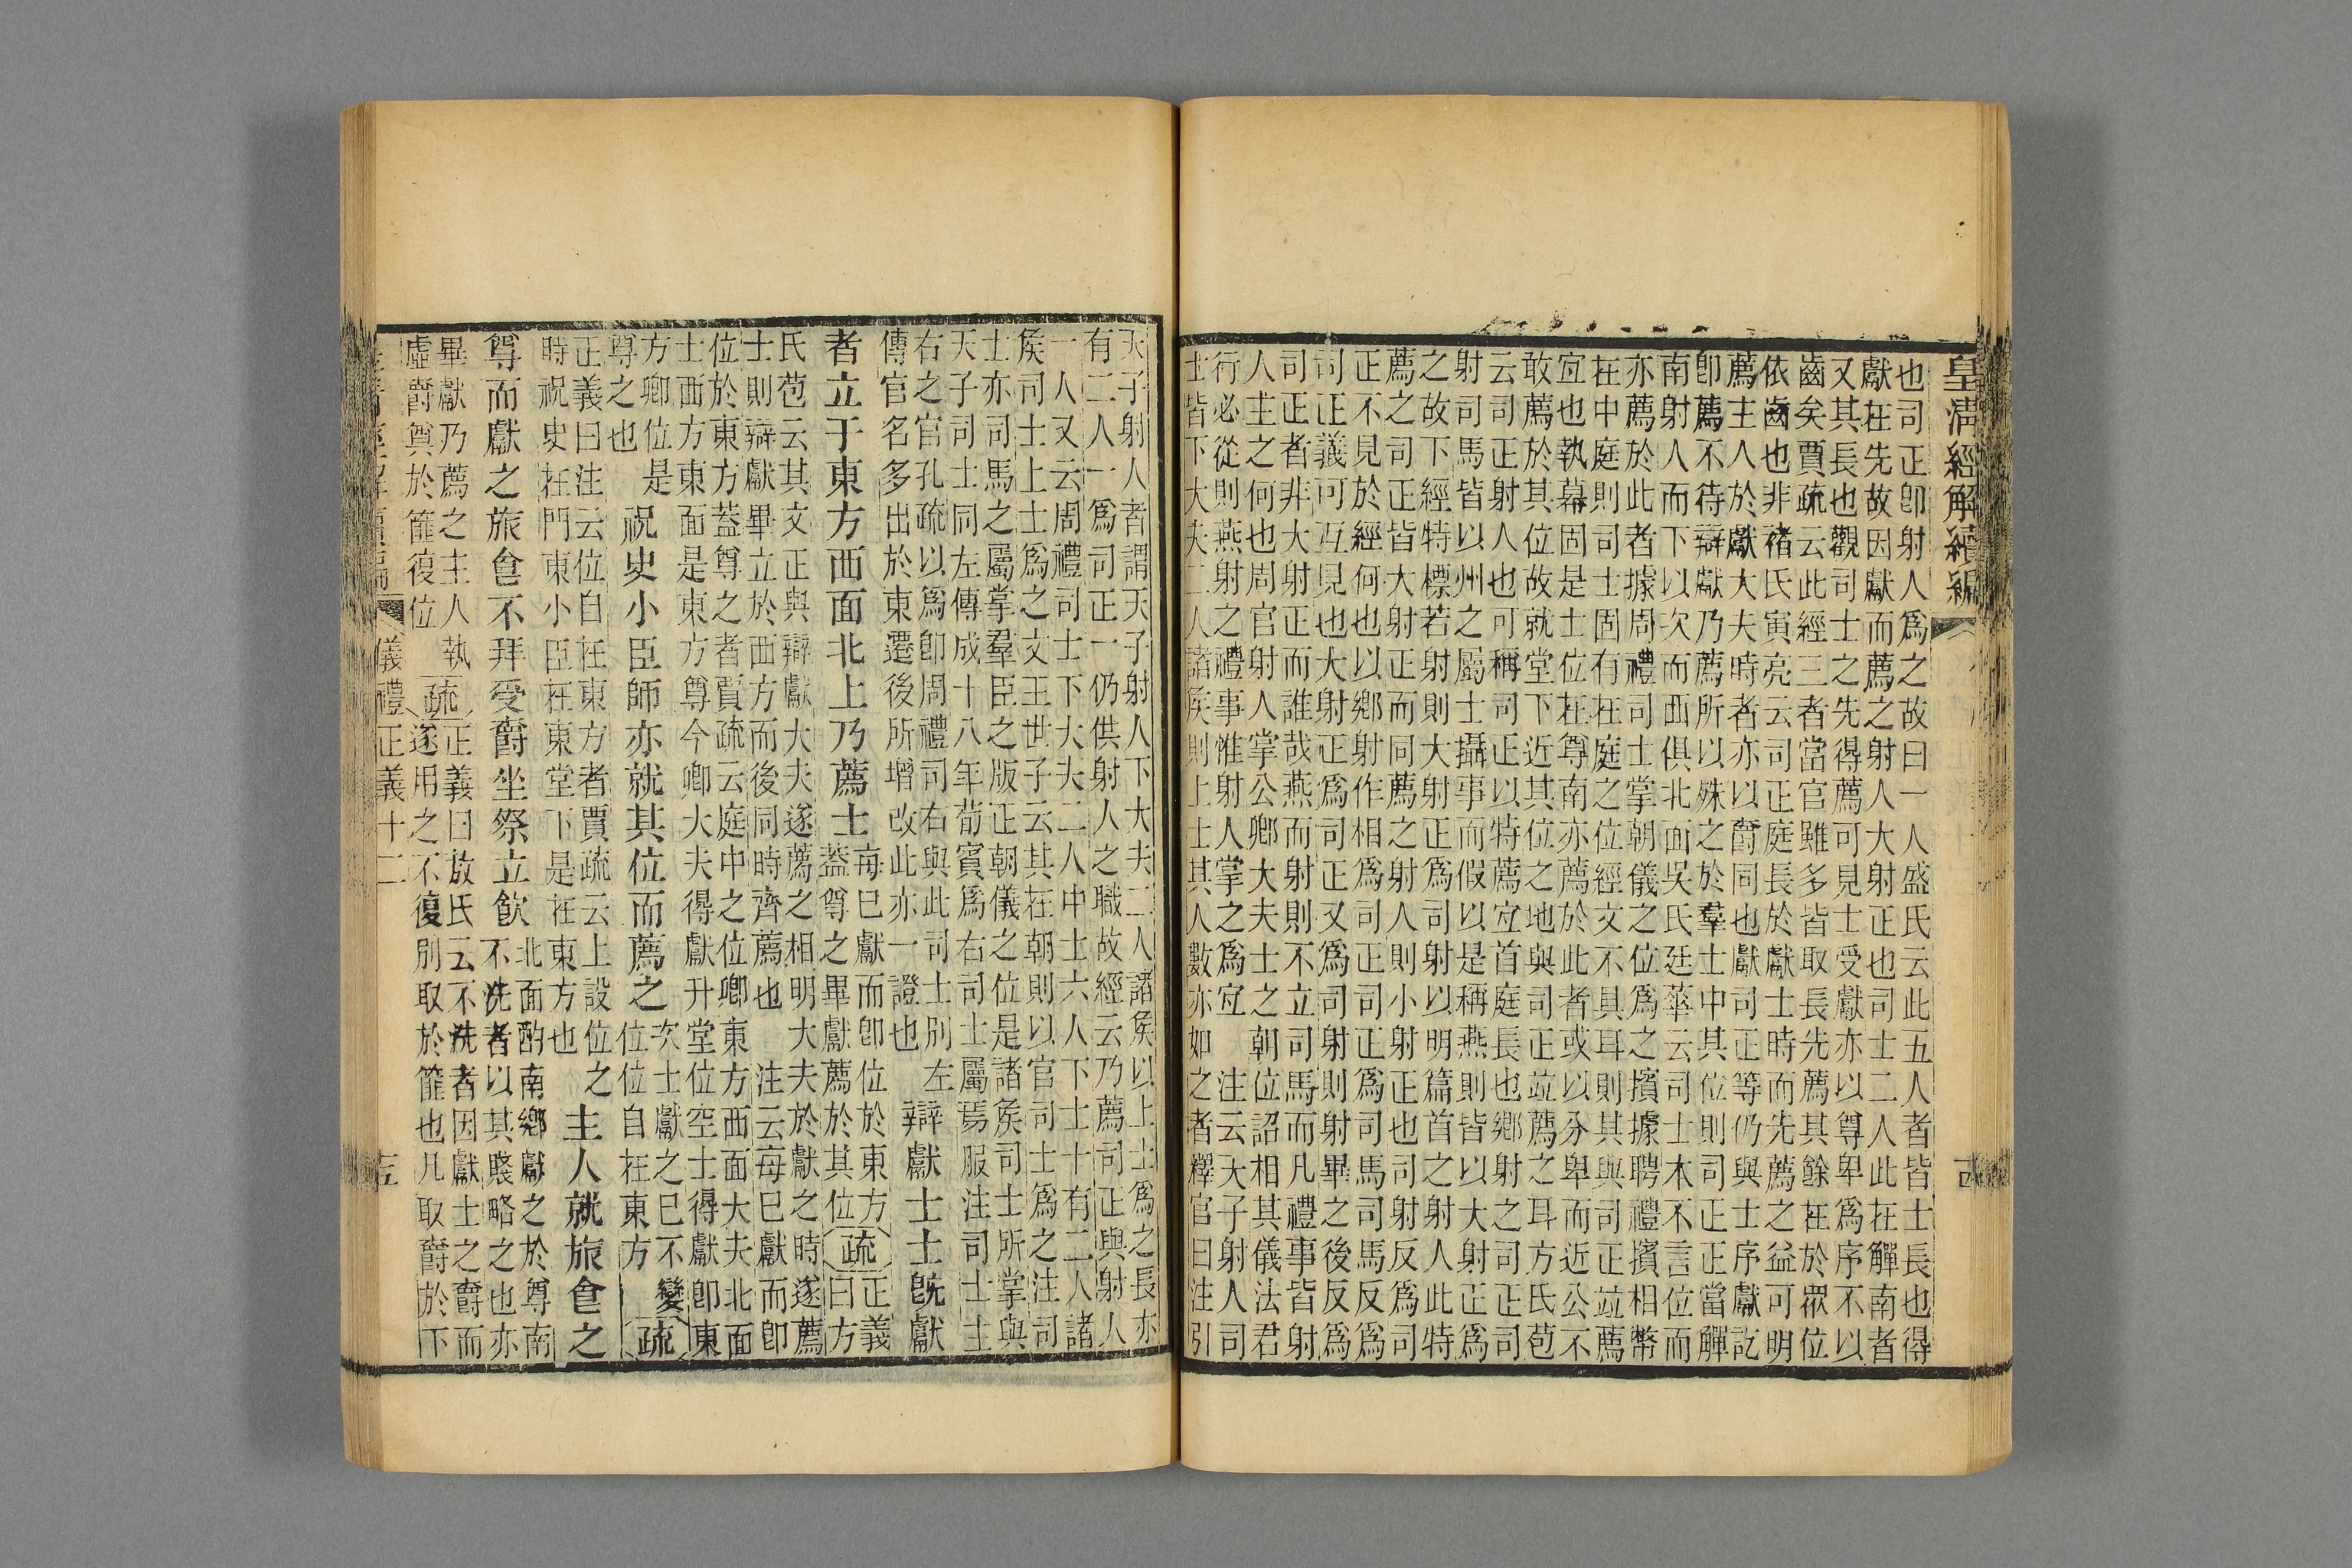 皇清經解續編
也司正卽射人爲之故曰一人盛氏云此五人者皆士長也得
獻在先故因獻而薦之射人大射正也司士二人此在觶南者
又其長也觀司士之先得薦可見士受獻亦以尊卑爲序不以
齒矣賈疏云此經三者當官雖多皆取長先薦其餘在於眾位
依齒也非褚氏寅亮云司正庭長於獻士時而先薦之益可明
薦主人於獻大夫時者亦以爵同也獻司正等仍與士序獻訖
卽薦不待辯獻乃薦所以殊之於羣士中其位則司正正當觶
南射人而下以次而西俱北面吳氏廷華云司士本不言位而
亦薦於此者據周禮司士掌朝儀之位爲之擯據聘禮擯相幣
在中庭則司士固有在庭之位經文不具耳則其與司正竝薦
宜也執冪固是士位在尊南亦薦於此者或以分卑而近公不
敢薦於其位故就堂下近其位之地與司正竝薦之耳方氏苞
云司正射人也可稱司正以特薦宜首庭長也鄉射之司正司
射司馬皆以州之屬士攝事而假以是稱燕則皆以大射正爲
之故下經特標若射則大射正爲司射以明篇首之射人此特
薦之司正皆大射正而同薦之射人則小射正也司射反爲司
正不見於經何也以鄉射作相爲司正司正爲司馬司馬反爲
司正義可互見也大射正爲司正又爲司射則射畢之後反爲
司正者非大射正而誰哉燕而射則不立司馬而凡禮事皆射
人主之何也周官射人掌公鄉大夫士之朝位詔相其儀法君
行必從則燕射之禮事惟射人掌之爲宜　注云天子射人司
士皆下大夫二人諸侯則上士其人數亦如之者釋官曰注引
天子射人者謂天子射人下大夫二人諸侯以上士爲之長亦
有二人一爲司正一仍供射人之職故經云乃薦司正與射人
一人又云周禮司士下大夫二人中士六人下士十有二人諸
侯司士上士爲之文王世子云其在朝則以官司士爲之注司
士亦司馬之屬掌羣臣之版正朝儀之位是諸侯司士所掌與
天子司士同左傳成十八年荀賓爲右司士屬焉服注司士主
右之官孔疏以爲卽周禮司右與此司士別　左
傳官名多出於東遷後所增改此亦一證也
辯獻士士旣獻
者立于東方西面北上乃薦士
每已獻而卽位於東方
蓋尊之畢獻薦於其位
疏
正義
曰方
氏苞云其文正與辯獻大夫遂薦之相明大夫於獻之時遂薦
士則辯獻畢立於西方而後同時齊薦也　注云每已獻而卽
位於東方蓋尊之者賈疏云庭中之位卿東方西面大夫北面
士西方東面是東方尊今卿大夫得獻升堂位空士得獻卽東
方卿位是
尊之也
祝史小臣師亦就其位而薦之
次士獻之已不變
位位自在東方
疏
正義曰注云位自在東方者賈疏云上設位之
時祝史在門東小臣在東堂下是在東方也
主人就旅食之
尊而獻之旅食不拜受爵坐祭立飲
北面酌南鄉獻之於尊南
不洗者以其賤略之也亦
畢獻乃薦之主人執
虛爵奠於篚復位
疏
正義曰敖氏云不洗者因獻士之爵而
遂用之不復別取於篚也凡取爵於下
儀禮正義十二